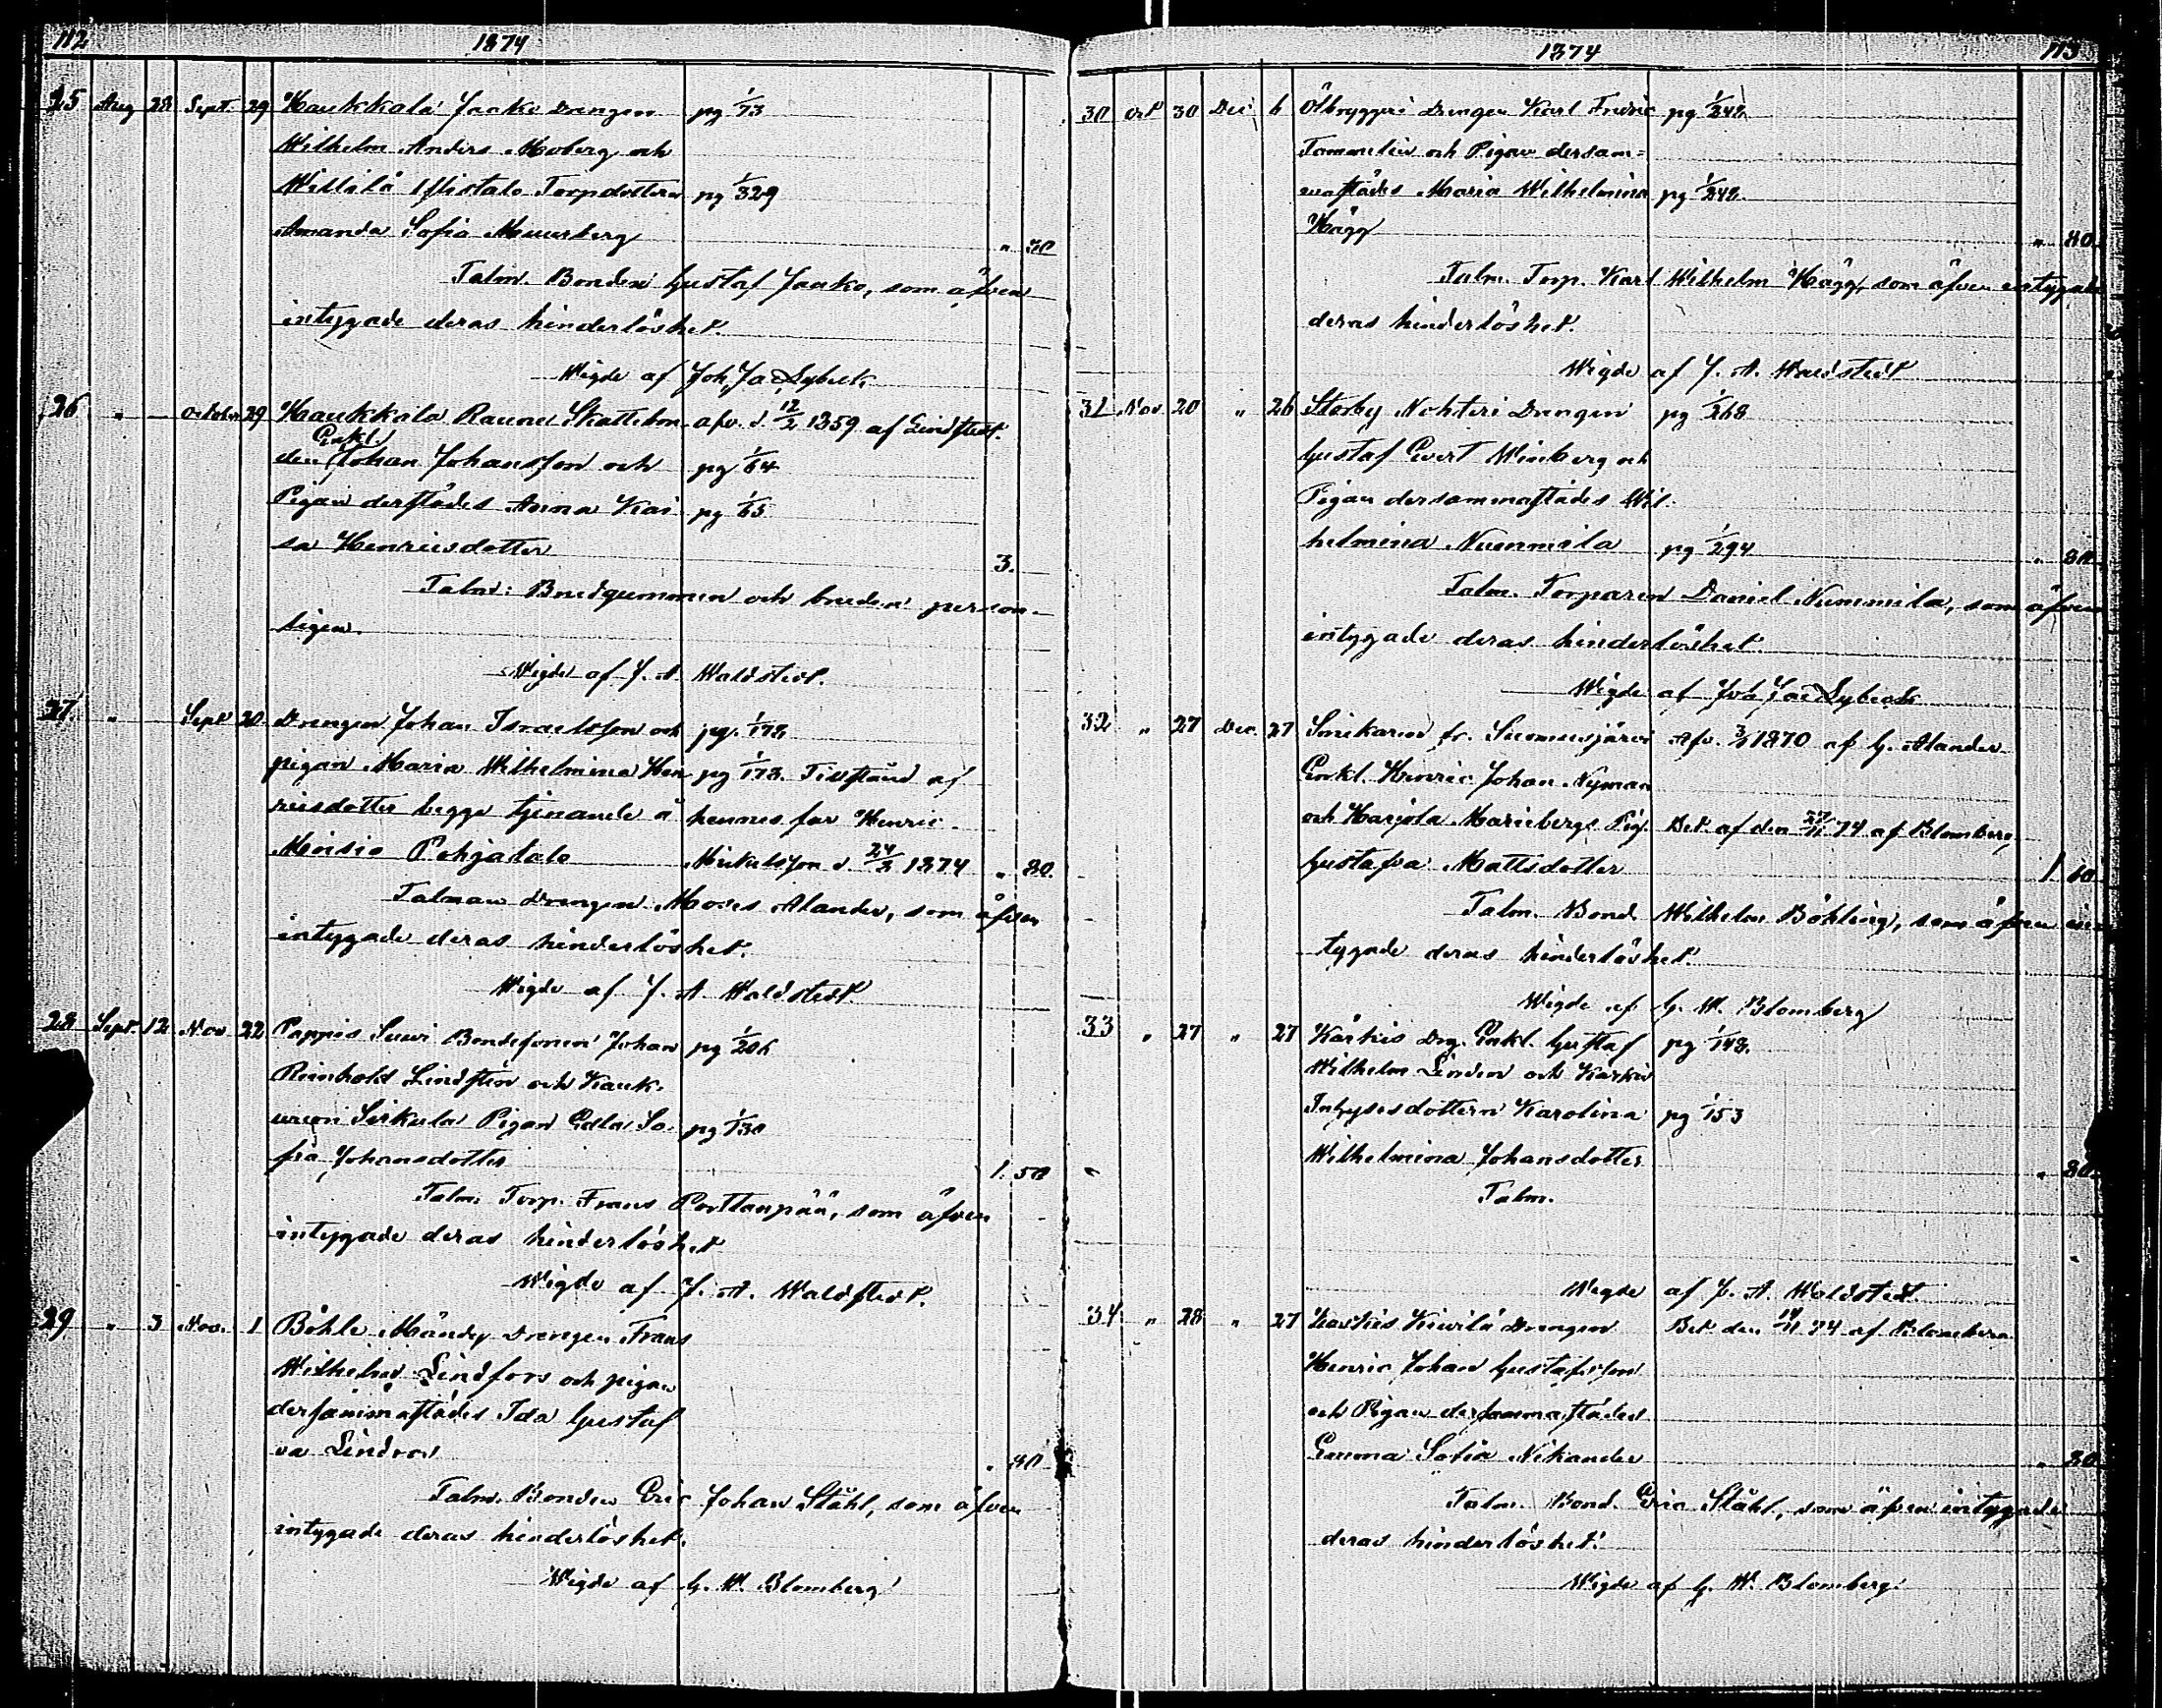 112 1874
25 Aug 28 Sept. 29 Haukkala Jaako Drengen pg 1/73
Wilhelm Anders Moberg och
Wittilä Yllistalo Torpdottern pg 1/329
Amanda Sofia Muurberg " 80
Talm. Bonden Gustaf Jaako, som äfven
intygade deras hinderlöshet.
Wigde af Joh. Jac. Sybeck
26 " October 29 Haukkala Raunu Skattebon- afv. d. 12/2 1859 af Lindstedt.
Enkl.
den Johan Johansson och pg 1/64
Pigan derstädes Anna Kai- pg 1/65
sa Henricsdotter 3.
Talm: Brudgummen och bruden person-
ligen.
Wigde af J. A. Waldstedt.
27 " Sept 20 Drengen Johan Israelsson och pg. 1/178
pigan Maria Wilhelmina Hen- pg 1/178. Tillstånd af
ricsdotter begge tjenande å hennes far Henric
Moisio Pohjatalo Mickelsson d. 24/8 1874 " 80.
Talman Drengen Moses Alander, som äfven
intygade deras hinderlöshet.
Wigde af J. A. Waldstedt
28 Sept. 12 Nov 22 Pappis Suwi Bondesonen Johan pg 1/206
Reinhold Lindstén och Kauk-
urion Sirkula Pigan Edla So- pg 1/130
fia Johansdotter 1. 50
Talm: Torp. Frans Porttanpää, som äfven
intygade deras hinderlöshet
Wigde af J. A. Waldstedt.
29 " 3 Nov. 1 Böhle Mändy Drengen Frans
Wilhelm Lindfors och pigan
dersammastädes Ida Gustaf
va Lindroos " 80
Talm. Bonden Eric Johan Ståhl, som äfven
intygade deras hinderlöshet.
Wigde af G. W. Blomberg
1874 113
30 Oct 30 Dec 6 Ölbryggeri Drengen Karl Fredric pg 1/348
Tommelin och Pigan dersam-
mastädes Maria Wilhelmina pg 1/348.
Hägg " 80.
Talm. Torp. Karl Wilhelm Hägg, som äfven intygade
deras hinderlöshet.
Wigde af J. A. Waldstedt
31 Nov. 20 " 26 Storby Nohteri Drengen pg 1/268
Gustaf Evert Winberg och
Pigan dersammastädes Wil-
helmina Nummila pg 1/294 " 80
Talm. Torparen Daniel Nummila, som äfven
intygade deras hinderlöshet.
Wigde af Joh. Jac. Sybeck
32 " 27 Dec. 27 Snickaren fr. Suomusjärvi Afv. 3/1 1870 af G. Alander
Enkl. Henric Johan Nyman
och Harjola Mariebergs Pig. Bet. af den 27/11 74 af Blomberg
Gustafva Mattsdotter 1. 60
Talm. Bond. Wilhelm Böhling, som äfven in-
tygade deras hinderlöshet.
Wigde af G. W. Blomberg
33 " 27 " 27 Kärkis Drg. Enkl. Gustaf pg 1/148.
Wilhelm Linden och Kärkis
Inhysesdottern Karolina pg 1/153
Wilhelmina Johansdotter " 80.
Talm.
Wigde af J. A. Waldstedt
34 " 28 " 27 Kiwilä Drengen Bet. den 14/11 74 af Blomberg
Henric Johan Gustafsson
och Pigan dersammastädes
Emma Sofia Nikander " 80
Talm. Bond. Eric Ståhl, som äfven intygade
deras hinderlöshet.
Wigde af G. W. Blomberg